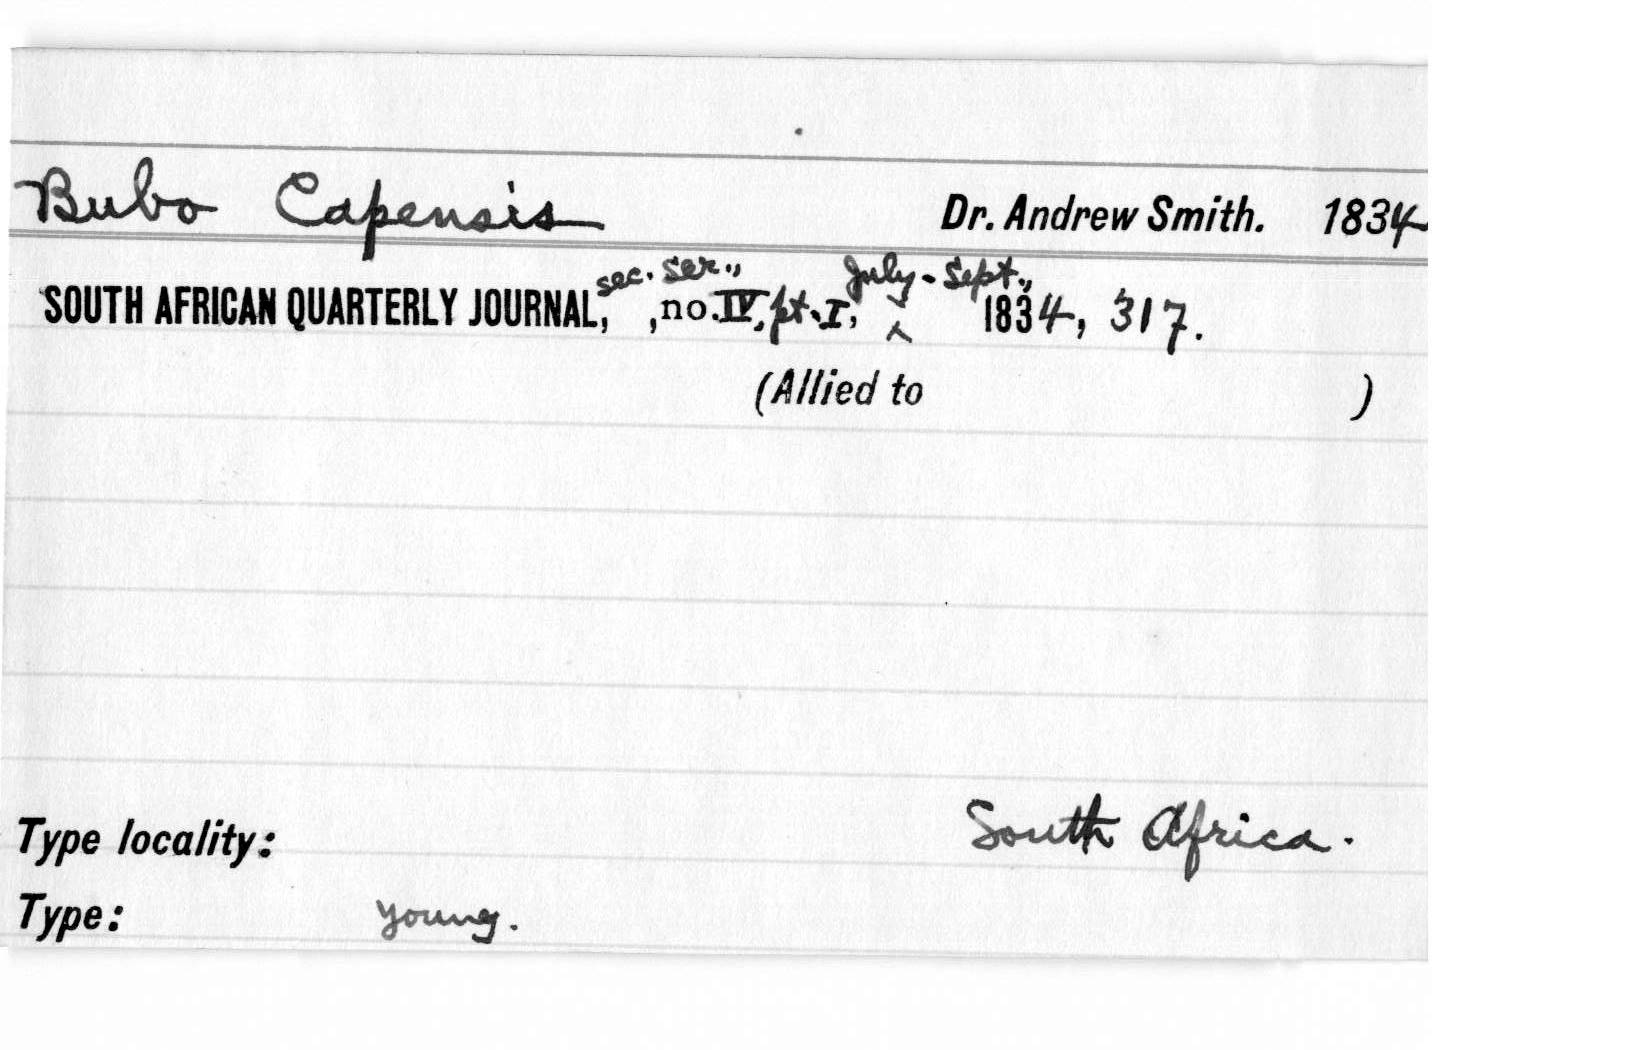 Bubo Capensis Dr. Andrew Smith. 1834
SOUTH AFRICAN QUARTERLY JOURNAL, sec. ser., ,no. IV, pt. I, July - Sept., 1834, 317.
(Allied to )
Type locality: South Africa.
Type: young.